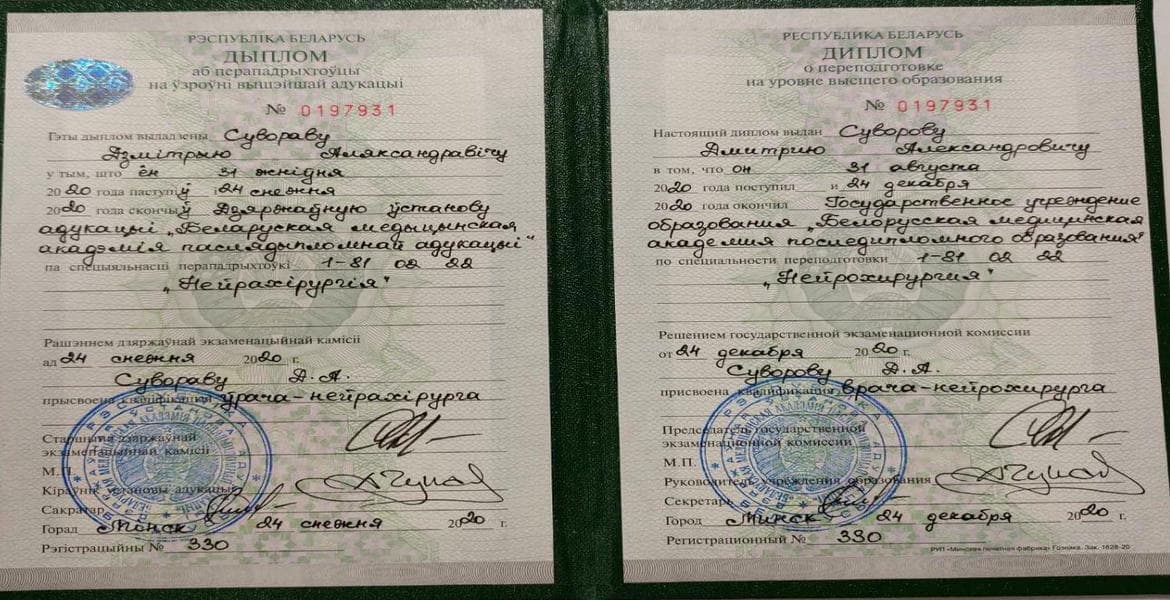 РЭСПУБЛІКА БЕЛАРУСЬ
ДЫПЛОМ
аб перападрыхтоўцы
на ўзроўні вышэйшай адукацыі
№ 0197931
Гэты дыплом выдадзены Сувораву
Дзмітрыю Аляксандравічу
у тым, што ён 31 жніўня
2020 года паступіў і 24 снежня
2020 года скончыў Дзяржаўную ўстанову
адукацыі „Беларуская медыцынская
акадэмія паслядыпломнай адукацыі"
па спецыяльнасці перападрыхтоўкі 1-81 02 22
„Нейрахірургія"
Рашэннем дзяржаўнай экзаменацыйнай камісіі
ад 24 снежня 2020 г.
Сувораву Д.А.
прысвоена кваліфікацыя ўрача-нейрахірурга
Старшыня дзяржаўнай
экзаменацыйнай камісіі
М.П.
Кіраўнік установы адукацыі
Сакратар
Горад Мінск 24 снежня 2020 г.
Рэгістрацыйны № 330
РЕСПУБЛИКА БЕЛАРУСЬ
ДИПЛОМ
о переподготовке
на уровне высшего образования
№ 0197931
Настоящий диплом выдан Суворову
Дмитрию Александровичу
в том, что он 31 августа
2020 года поступил и 24 декабря
2020 года окончил Государственное учреждение
образования „Белорусская медицинская
академия последипломного образования"
по специальности переподготовки 1-81 02 22
„Нейрохирургия"
Решением государственной экзаменационной комиссии
от 24 декабря 2020 г.
Суворову Д.А.
присвоена квалификация врача-нейрохирурга
Председатель государственной
экзаменационной комиссии
М.П.
Руководитель учреждения образования
Секретарь
Город Минск 24 декабря 2020 г.
Регистрационный № 330
РУП «Минская печатная фабрика» Гознака. Зак. 1628-20